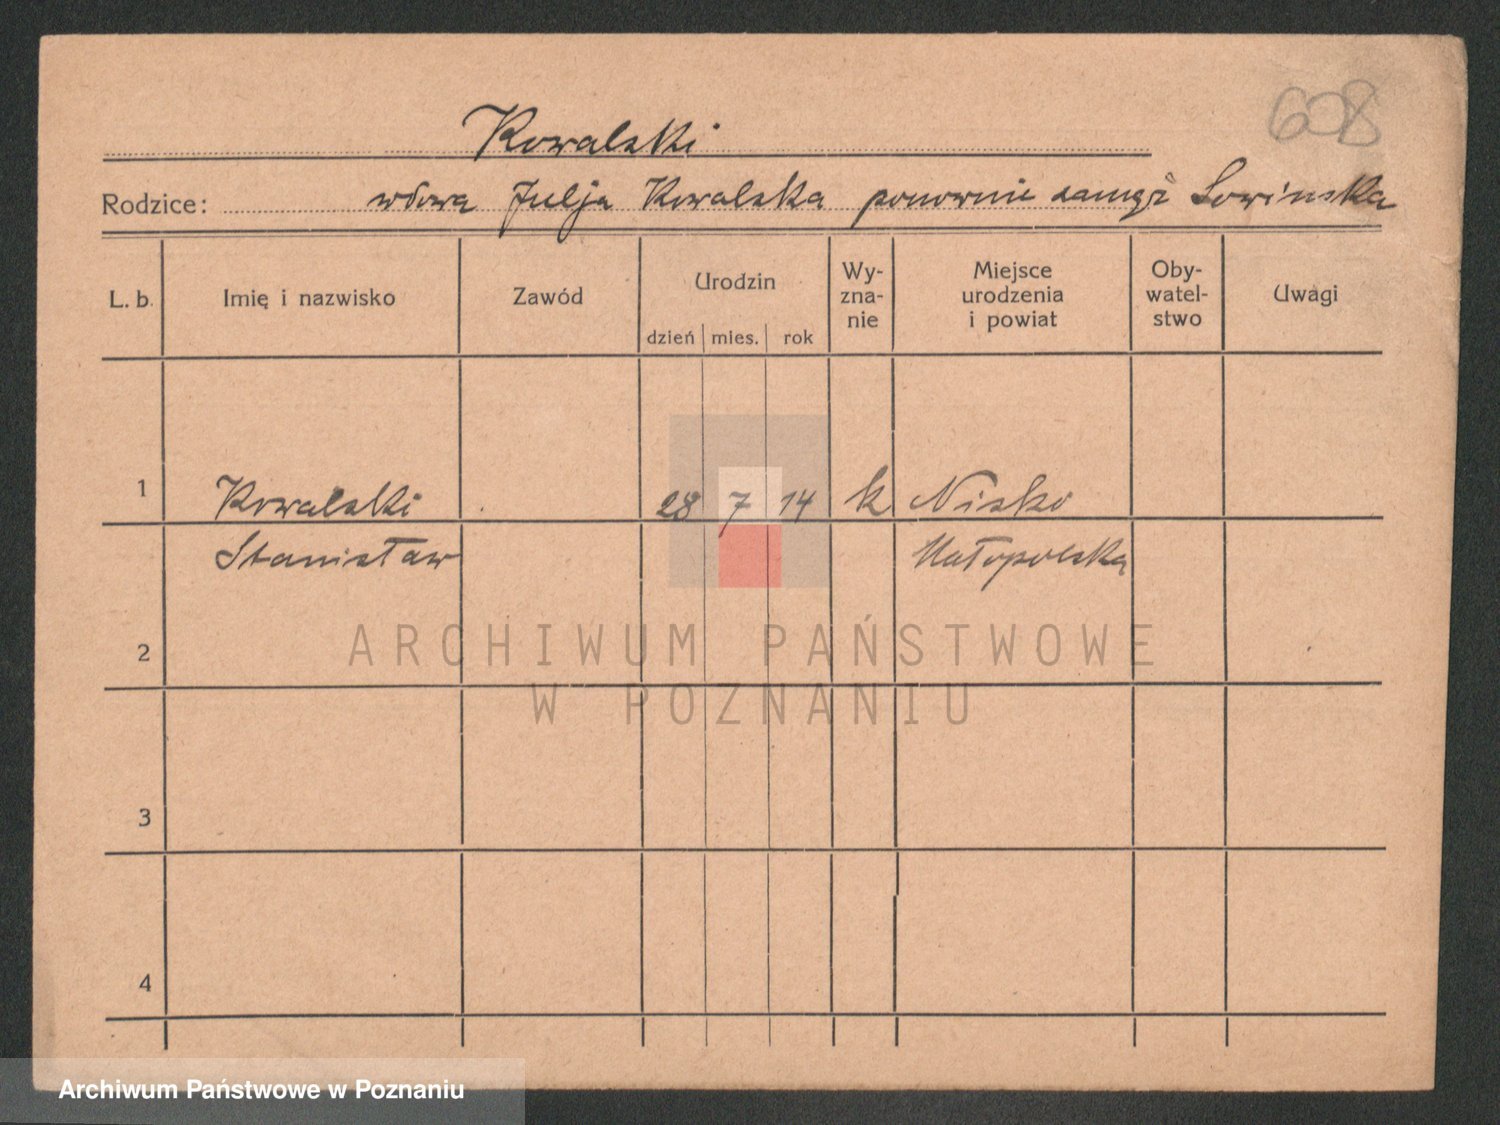 608
Kowalski
Rodzice: wdowa Julja Kowalska ponownie zamęż Lowińska
L. b. Imię i nazwisko Zawód Urodzin Wy- Miejsce Oby- Uwagi
zna- urodzenia watel-
nie i powiat stwo
dzień mies. rok
1 Kowalski 28 7 14 k Nisko
Stanisław Małopolska
2
ARCHIWUM PAŃSTWOWE
W POZNANIU
3
4
Archiwum Państwowe w Poznaniu